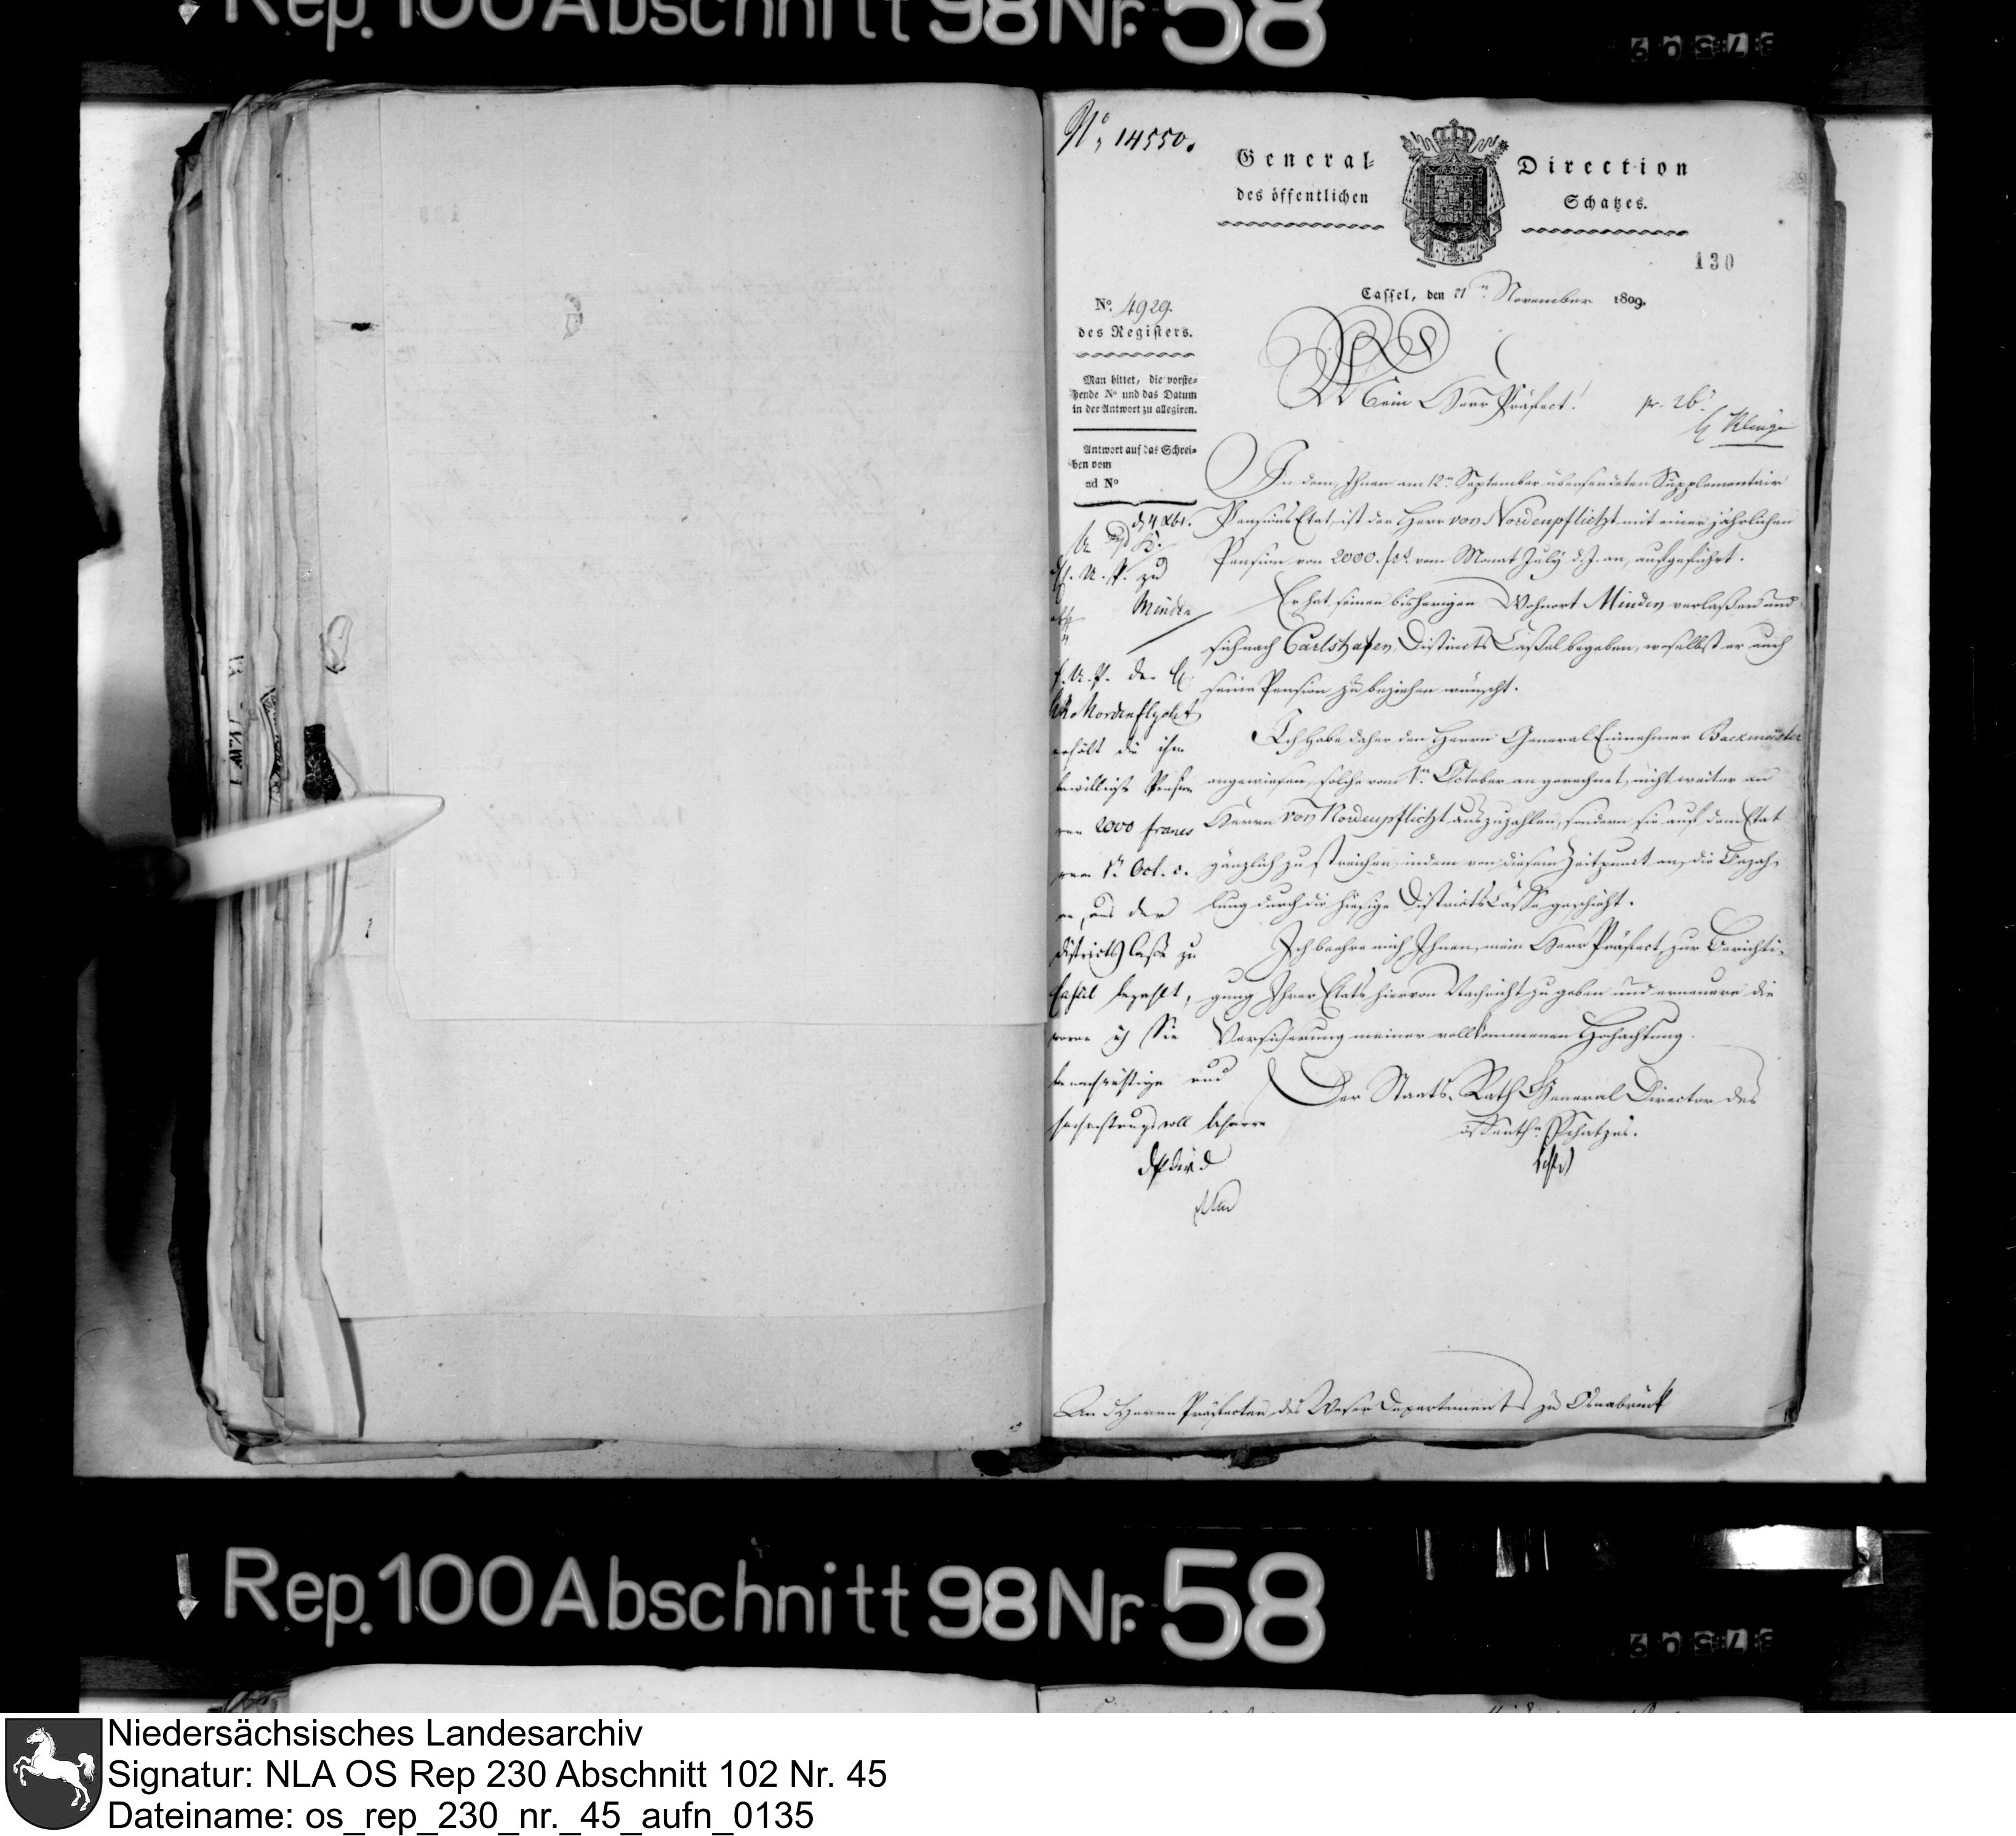 Rep. 100 Abschnitt 98 Nr. 58
No. 14550.
General- Direction
des öffentlichen Schatzes.
130
Cassel, den 21n November 1809.
No. 4929.
des Registers.
Man bittet, die vorste-
hende No und das Datum
in der Antwort zu allegiren.
Antwort auf das Schrei-
ben vom
ad No
Mein Herr Präfect!
pr. 26
In dem, Ihnen am 12n September übersendeten Supplementair
Pensions Etat, ist der Herr von Nordenpflicht mit einer jährlichen
Pension von 2000. frs. vom Monat July d. J. an, aufgeführt.
Er hat seinen bisherigen Wohnort Minden verlaßen und
sich nach Carlshafen, Districts Caßel begeben, woselbst er auch
seine Pension zu beziehen wünscht.
Ich habe daher den Herrn General Einnehmer Backmeister
angewiesen, solche vom 1n October an gerechnet, nicht weiter an
Herrn von Nordenpflicht auszuzahlen, sondern sie auf dem Etat
gänzlich zu streichen, indem von diesem Zeitpunct an, die Bezah-
lung durch die hiesige Districts Casse geschieht.
Ich beehre mich Ihnen, mein Herr Präfect, zur Berichti-
gung Ihrer Etats hiervon Nachricht zu geben und erneuere die
Versicherung meiner vollkommenen Hochachtung.
Der Staats-Rath General Director des
öffentln Schatzes.
An den Herrn Präfecten des Weser Departements zu Osnabrück
U. P. zu
Minden
Nordenflycht
erhält die ihm
bewilligte Pension
von 2000 francs
vom 1n Oct. c.
an, aus der
Districts Casse zu
Cassel bezahlt,
wovon ich Sie
benachrichtige und
hochachtungsvoll beharre
Rep. 100 Abschnitt 98 Nr. 58
Niedersächsisches Landesarchiv
Signatur: NLA OS Rep 230 Abschnitt 102 Nr. 45
Dateiname: os_rep_230_nr._45_aufn_0135